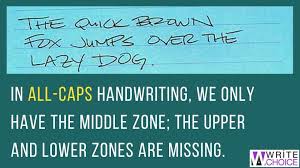 THE QUICK BROWN
FOX JUMPS OVER THE
LAZY DOG.
IN ALL-CAPS HANDWRITING, WE ONLY
HAVE THE MIDDLE ZONE; THE UPPER
AND LOWER ZONES ARE MISSING.
W WRITE
CHOICE